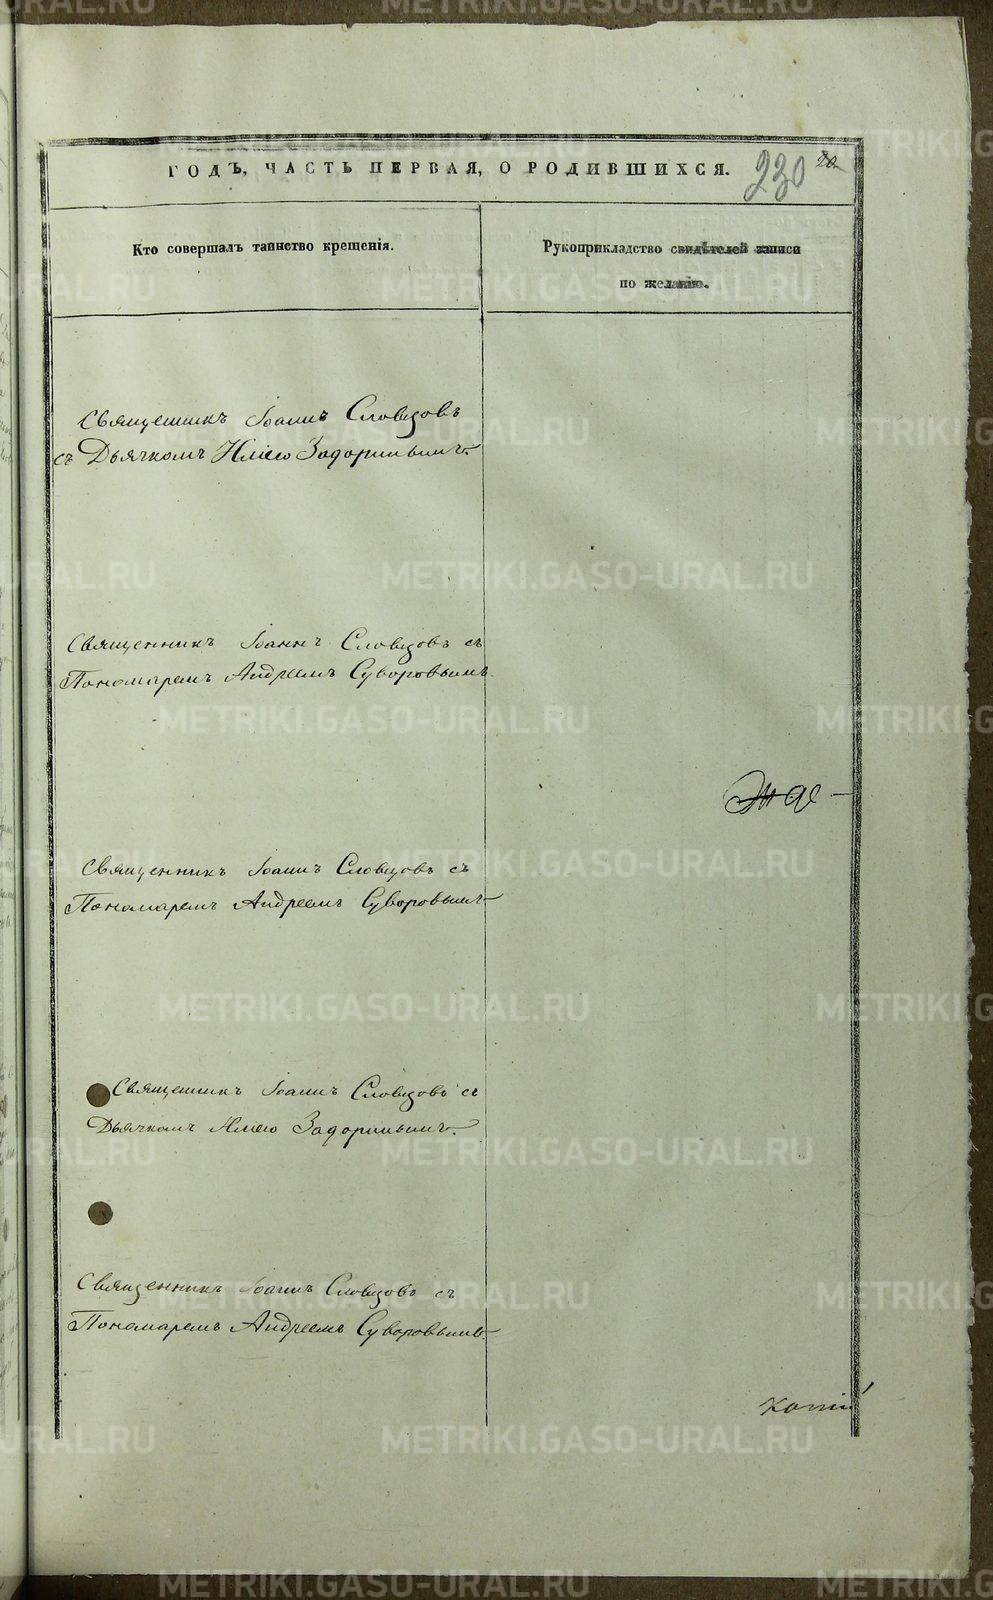 ГОДЪ, ЧАСТЬ ПЕРВАЯ, О РОДИВШИХСЯ.
230
Кто совершалъ таинство крещенія.
Рукоприкладство свидѣтелей записи
по желанію.
Священникъ Іоаннъ Словцовъ
съ Дьячкомъ Иліею Задоринымъ.
Священникъ Іоаннъ Словцовъ съ
Пономаремъ Андреемъ Суворовымъ.
Священникъ Іоаннъ Словцовъ съ
Пономаремъ Андреемъ Суворовымъ
Священникъ Іоаннъ Словцовъ съ
Дьячкомъ Иліею Задоринымъ.
Священникъ Іоаннъ Словцовъ съ
Пономаремъ Андреемъ Суворовымъ.
METRIKI.GASO-URAL.RU